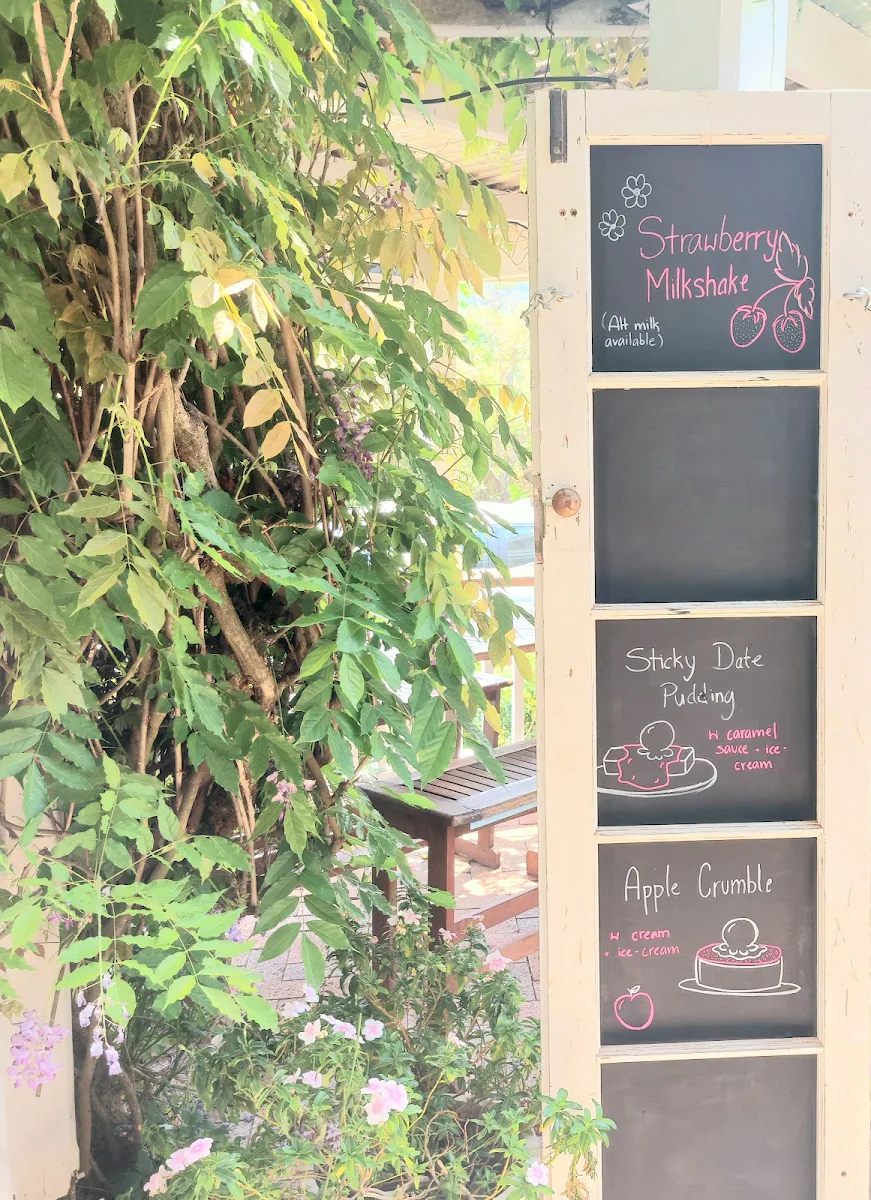 Strawberry
Milkshake
(Alt milk
available)
Sticky Date
Pudding
w caramel
sauce + ice-
cream
Apple Crumble
w cream
+ ice-cream